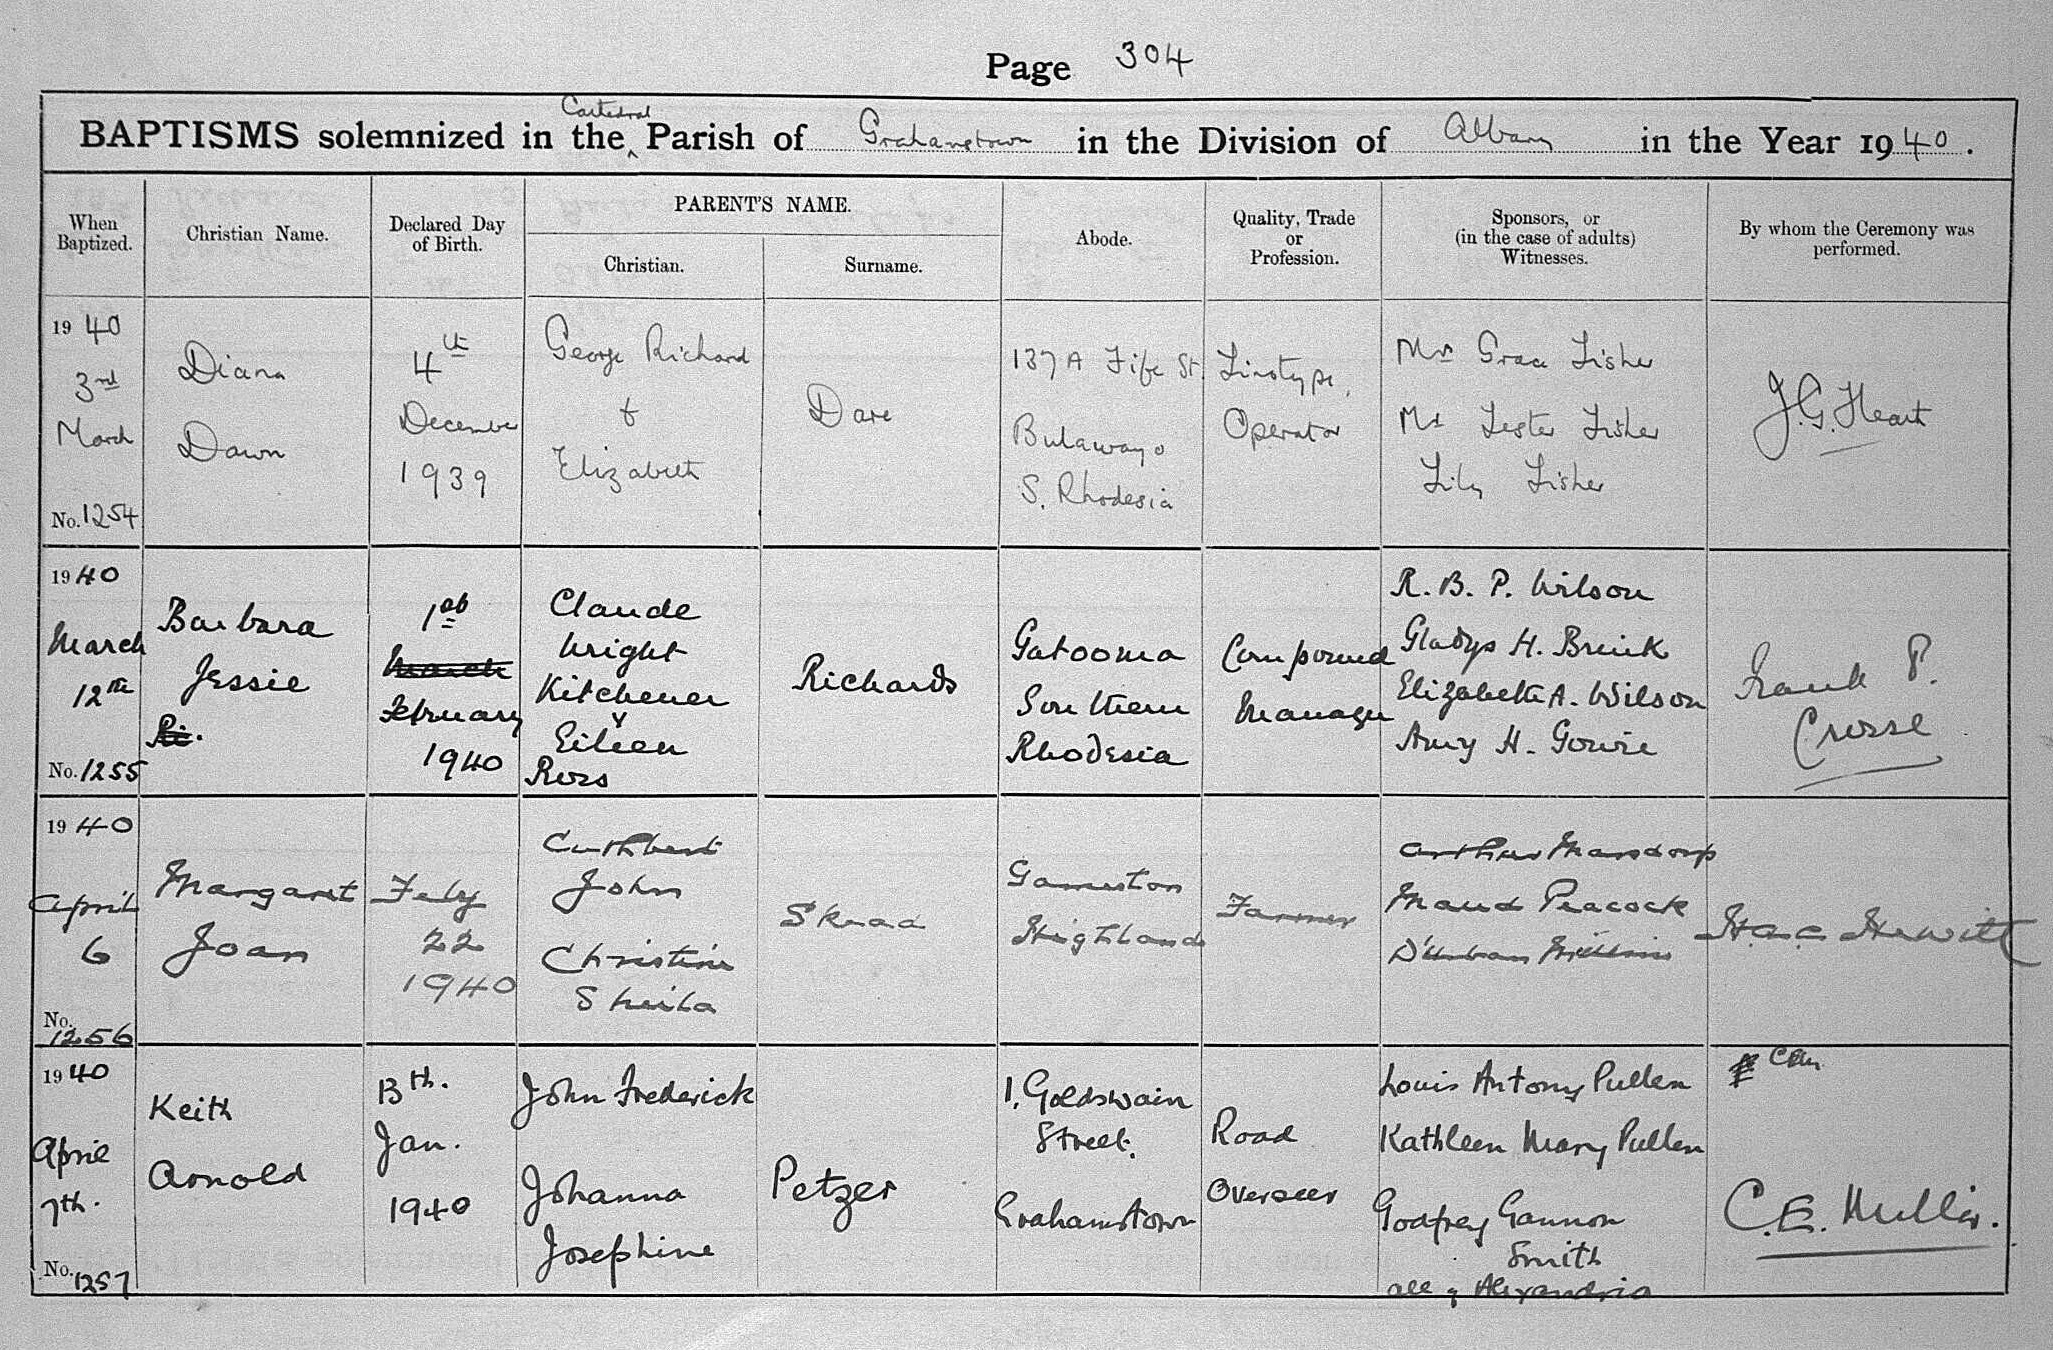 Page 304
BAPTISMS solemnized in the Cathedral Parish of Grahamstown in the Division of Albany in the Year 1940.
When Baptized.
Christian Name.
Declared Day of Birth.
PARENT'S NAME.
Christian.
Surname.
Abode.
Quality, Trade or Profession.
Sponsors, or (in the case of adults) Witnesses.
By whom the Ceremony was performed.
1940
3rd
March
No. 1254
Diana
Dawn
4th
December
1939
George Richard
&
Elizabeth
Dare
137A Fife St
Bulawayo
S. Rhodesia
Linotype
Operator
Mrs Grace Fisher
Mr Lester Fisher
Lily Fisher
J.G. Heart
1940
March
12th
No. 1255
Barbara
Jessie
Ri.
1st
March
February
1940
Claude
Wright
Kitchener
Eileen
Ross
Richards
Gatooma
Southern
Rhodesia
Compound
Manager
R. B. P. Wilson
Gladys H. Brink
Elizabeth A. Wilson
Amy H. Gowie
Frank P.
Crosse
1940
April
6
No. 1256
Margaret
Joan
Feby
22
1940
Cuthbert
John
Christine
Sheila
Skead
Gameston
Highlands
Farmer
Arthur Marsdorp
Maud Peacock
D'Urban
Hewitt
1940
April
7th.
No. 1257
Keith
Arnold
13th.
Jan.
1940
John Frederick
Johanna
Josephine
Petzer
1, Goldswain
Street.
Grahamstown
Road
Overseer
Louis Antony Pullen
Kathleen Mary Pullen
Godfrey Gannon
Smith
all of Alexandria
CEM
C.E. Mullis.